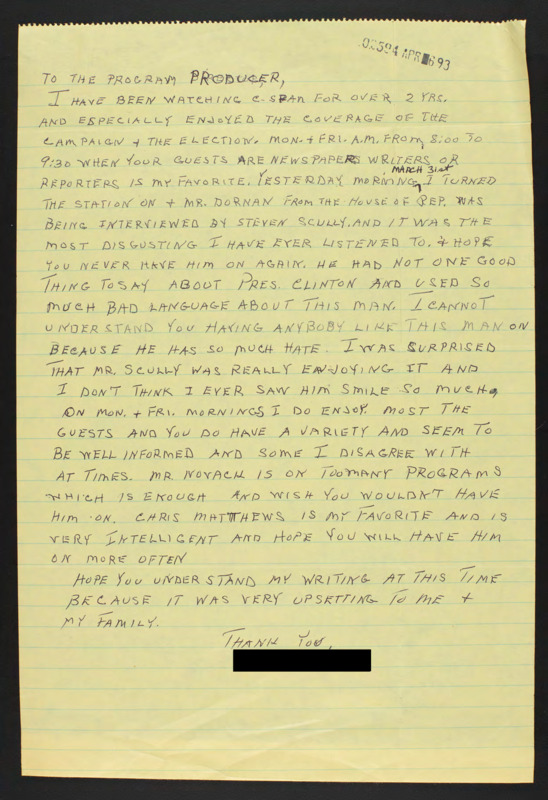 02594 APR 6 93
TO THE PROGRAM PRODUCER,
I HAVE BEEN WATCHING C-SPAN FOR OVER 2 YRS.
AND ESPECIALLY ENJOYED THE COVERAGE OF THE
CAMPAIGN + THE ELECTION. MON. + FRI. A.M. FROM 8:00 TO
9:30 WHEN YOUR GUESTS ARE NEWSPAPERS WRITERS OR
REPORTERS IS MY FAVORITE. YESTERDAY MORNING, MARCH 31st I TURNED
THE STATION ON + MR. DORNAN FROM THE HOUSE OF REP. WAS
BEING INTERVIEWED BY STEVEN SCULLY. AND IT WAS THE
MOST DISGUSTING I HAVE EVER LISTENED TO. + HOPE
YOU NEVER HAVE HIM ON AGAIN. HE HAD NOT ONE GOOD
THING TO SAY ABOUT PRES. CLINTON AND USED SO
MUCH BAD LANGUAGE ABOUT THIS MAN. I CANNOT
UNDERSTAND YOU HAVING ANYBOBY LIKE THIS MAN ON
BECAUSE HE HAS SO MUCH HATE. I WAS SURPRISED
THAT MR. SCULLY WAS REALLY ENJOYING IT AND
I DON'T THINK I EVER SAW HIM SMILE SO MUCH.
ON MON. + FRI. MORNINGS I DO ENJOY MOST THE
GUESTS AND YOU DO HAVE A VARIETY AND SEEM TO
BE WELL INFORMED AND SOME I DISAGREE WITH
AT TIMES. MR NOVACH IS ON TOO MANY PROGRAMS
WHICH IS ENOUGH AND WISH YOU WOULDN'T HAVE
HIM ON. CHRIS MATTHEWS IS MY FAVORITE AND IS
VERY INTELLIGENT AND HOPE YOU WILL HAVE HIM
ON MORE OFTEN
HOPE YOU UNDERSTAND MY WRITING AT THIS TIME
BECAUSE IT WAS VERY UPSETTING TO ME +
MY FAMILY.
THANK YOU,